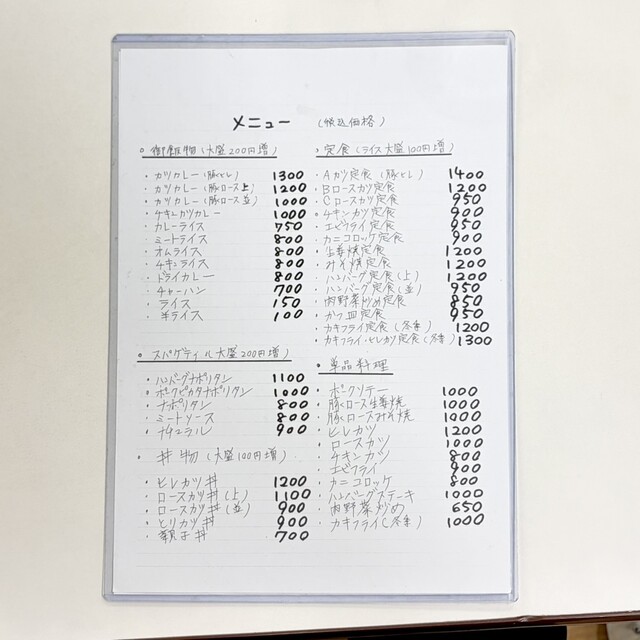 メニュー (税込価格)
・御飯物(大盛200円増)
・カツカレー(豚ヒレ) 1300
・カツカレー(豚ロース上) 1200
・カツカレー(豚ロース並) 1000
・チキンカツカレー 1000
・カレーライス 750
・ミートライス 800
・オムライス 800
・チキンライス 800
・ドライカレー 800
・チャーハン 700
・ライス 150
・半ライス 100
・スパゲティ(大盛200円増)
・ハンバーグナポリタン 1100
・ポークピカタナポリタン 1000
・ナポリタン 800
・ミートソース 800
・ナチュラル 900
・丼物(大盛100円増)
・ヒレカツ丼 1200
・ロースカツ丼(上) 1100
・ロースカツ丼(並) 900
・とりカツ丼 900
・親子丼 700
・定食(ライス大盛100円増)
・Aカツ定食(豚ヒレ) 1400
・Bロースカツ定食 1200
・Cロースカツ定食 950
・チキンカツ定食 900
・エビフライ定食 950
・カニコロッケ定食 900
・生姜焼定食 1200
・みそ焼定食 1200
・ハンバーグ定食(上) 1200
・ハンバーグ定食(並) 950
・肉野菜炒め定食 850
・カツ皿定食 950
・カキフライ定食(冬季) 1200
・カキフライ・ヒレカツ定食(冬季) 1300
・単品料理
・ポークソテー 1000
・豚ロース生姜焼 1000
・豚ロースみそ焼 1000
・ヒレカツ 1200
・ロースカツ 1000
・チキンカツ 800
・エビフライ 900
・カニコロッケ 800
・ハンバーグステーキ 1000
・肉野菜炒め 650
・カキフライ(冬季) 1000